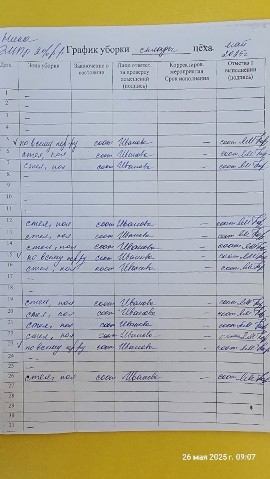 График уборки склады цеха. май 2025г
Дата Зона уборки Заключение о состоянии Лицо ответст. за проверку помещений (подпись) Корректиров. мероприятия Срок исполнения Отметка о исполнении (подпись)
1 –
2 –
3 –
4 –
5 по всему пер-ру соот Иванова – соот.
6 стел, пол соот Иванова – соот.
7 стел, пол соот Иванова – соот.
8 –
9 –
10 –
11 –
12 стел, пол соот Иванова – соот.
13 стел, пол соот Иванова – соот.
14 стел, пол соот Иванова – соот.
15 по всему пер-ру соот Иванова – соот.
16 стел, пол соот Иванова – соот.
17 –
18 –
19 стел, пол соот Иванова – соот.
20 стел, пол соот Иванова – соот.
21 стел, пол соот Иванова – соот.
22 стел, пол соот Иванова – соот.
23 по всему пер-ру соот Иванова – соот.
24 –
25 –
26 стел, пол соот Иванова – соот.
27
28
29
30
31
26 мая 2025 г. 09:07